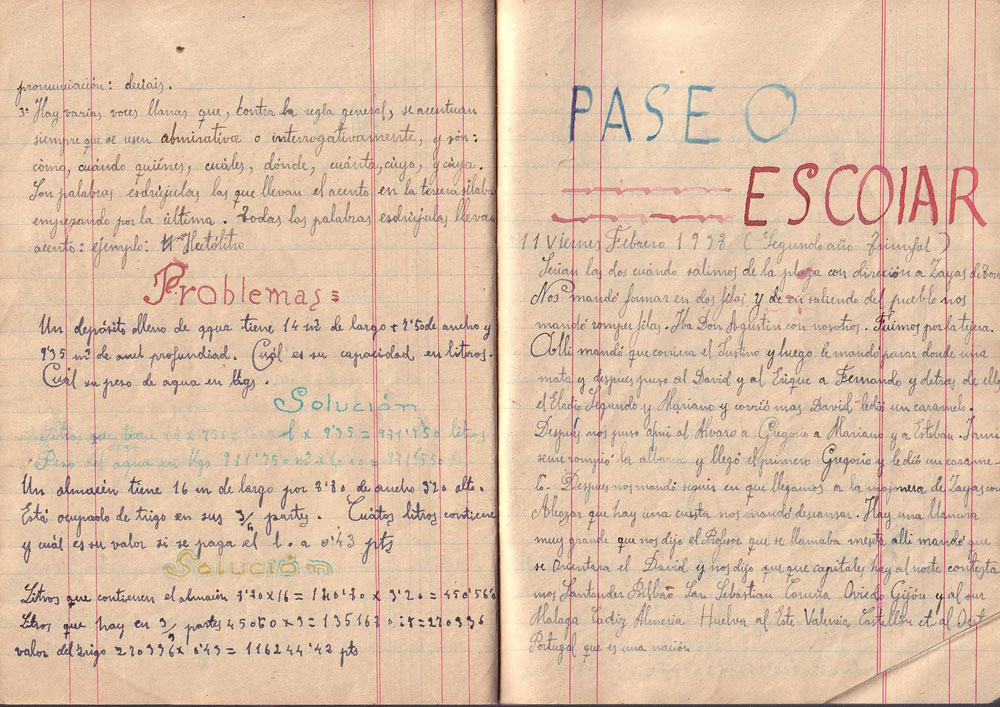 pronunciación: decíais.
3ª Hay varias voces llanas que, contra la regla general, se acentuan
siempre que se usen admirativa o interrogativamente, y son:
cómo, cuándo quiénes, cuáles, dónde, cuánta, cúyo, y cúya.
Son palabras esdrújulas las que llevan el acento en la tercera sílaba
empezando por la última. Todas las palabras esdrújulas llevan
acento: ejemplo: Hectólitro
Problemas
Un depósito lleno de agua tiene 14 m² de largo + 8'50 de ancho y
9'35 m² de profundiad. Cuál es su capacidad en litros.
Cuál su peso de agua en kgs.
Solución
Litros que x 9'35 = litros
Peso del agua en kgs
Un almacén tiene 16 m de largo por 8'80 de ancho 3'20 alto.
Está ocupado de trigo en sus 3/6 partes. Cuátos litros contiene
y cuál es su valor si se paga el l. a 0'43 pts
Solución
Litros que contienen el almacén x 3'20 = 450'560
Litros que hay en partes 45060 x 3 = 135167
valor del trigo 270336 x 0'43 = 116244'42 pts
PASEO
ESCOlAR
11 Viernes Febrero 1938 (Segundo año Triunfal)
Serian las dos cuándo salimos de la plaza con direción a Zayas de
Nos mandó formar en dos filas y saliendo del pueblo nos
mandó romper filas. Iba Don Agustin con nosotros. Fuimos por la
Alli mandó que corriera el Justino y luego le mandó parar donde una
mata y despues puso al David y al Erique a Fernando y detras de ello
el Eladio Segundo y Mariano y corrió mas David le dió un caramelo.
Después nos puso a mi al Alvaro a Gregorio a Mariano y a Esteban. Tami
seme rompió la albarca y llegó el primero Gregorio y le dió un carame
lo. Despues nos mandó seguir en que llegamos a la mojonera de Zayas con
Alcozar que hay una cuesta nos mandó descansar. Hay una llanura
muy grande que nos dijo el Profesor que se llamaba meseta alli mandó que
se orientara el David y nos dijo que que capitales hay al norte contesta
mos Santander Bilbao San Sebastian Coruña Oviedo Gijón y al sur
Malaga Cadiz Almeria Huelva al Este Valencia Castellón al Oest
Portugal que es una nación